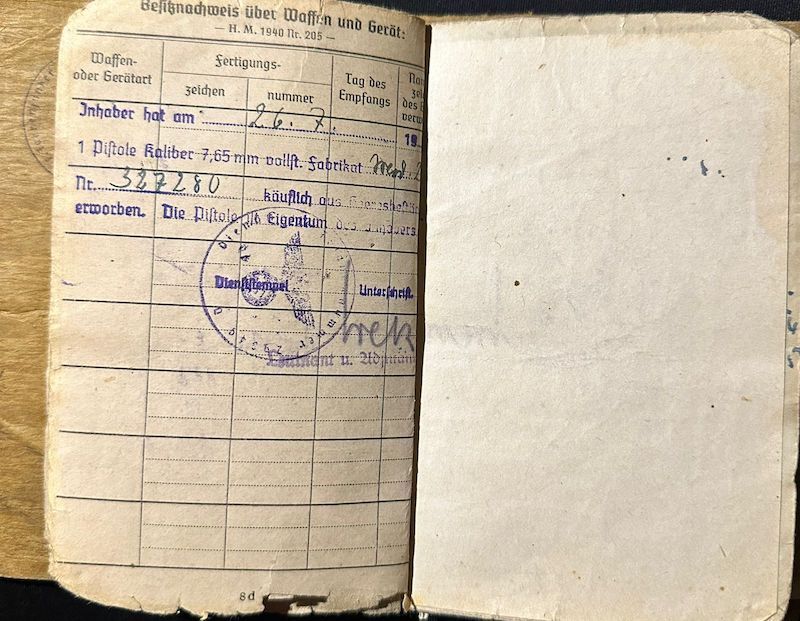 Besitznachweis über Waffen und Gerät:
— H. M. 1940 Nr. 205 —
Waffen- oder Gerätart
Fertigungs-
zeichen
nummer
Tag des Empfangs
Inhaber hat am 26. 7. 19
1 Pistole Kaliber 7,65 mm vollst. Fabrikat
Nr. 327280 käuflich aus
erworben. Die Pistole ist Eigentum des Inhabers.
Dienststempel
Unterschrift.
Leutnant u. Adjutant
8d